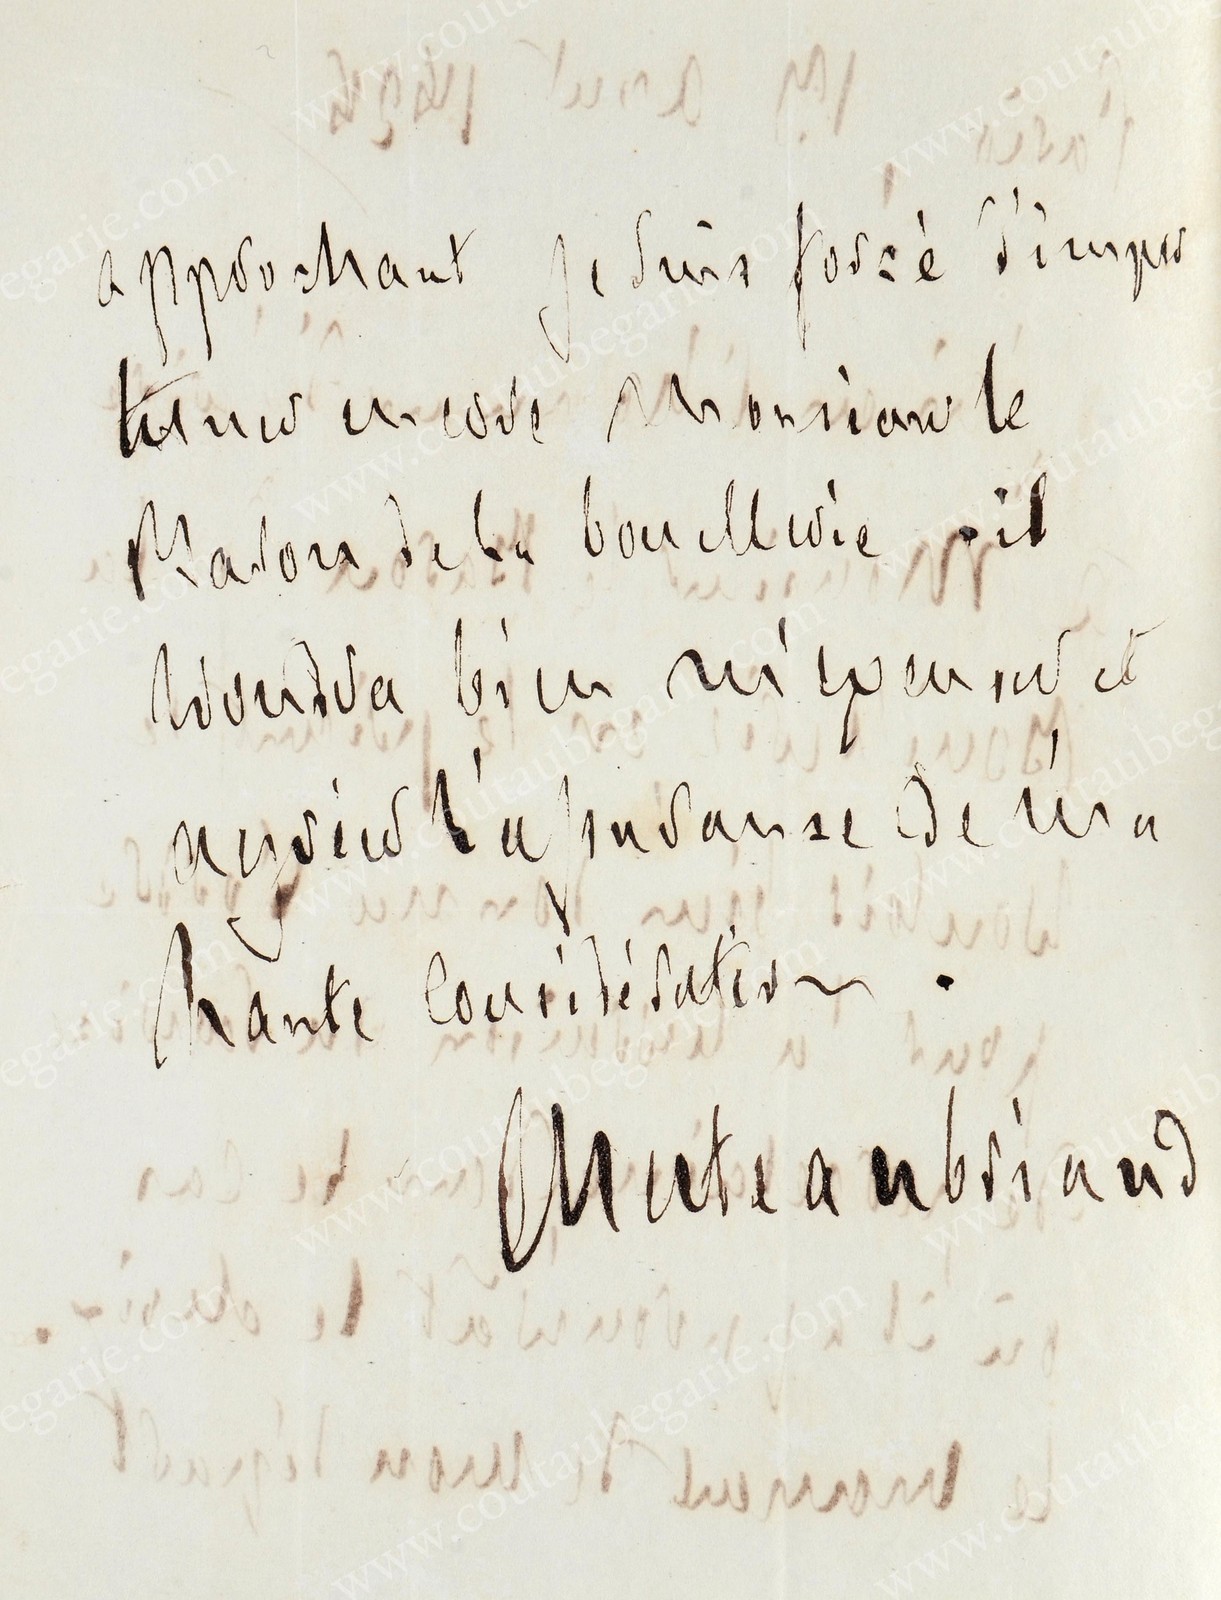 approchant je suis forcé d'impor
tuner encore Monsieur le
Baron de la bouillerie. il
voudra bien m'excuser et
agréer l'assurance de ma
haute considération.
Chateaubriand
www.coutaubegarie.com